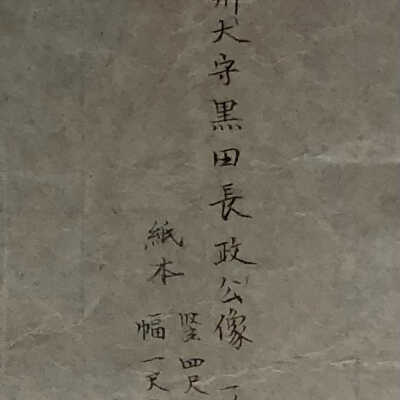 州大守黒田長政公像
紙本
竪四尺
幅一尺